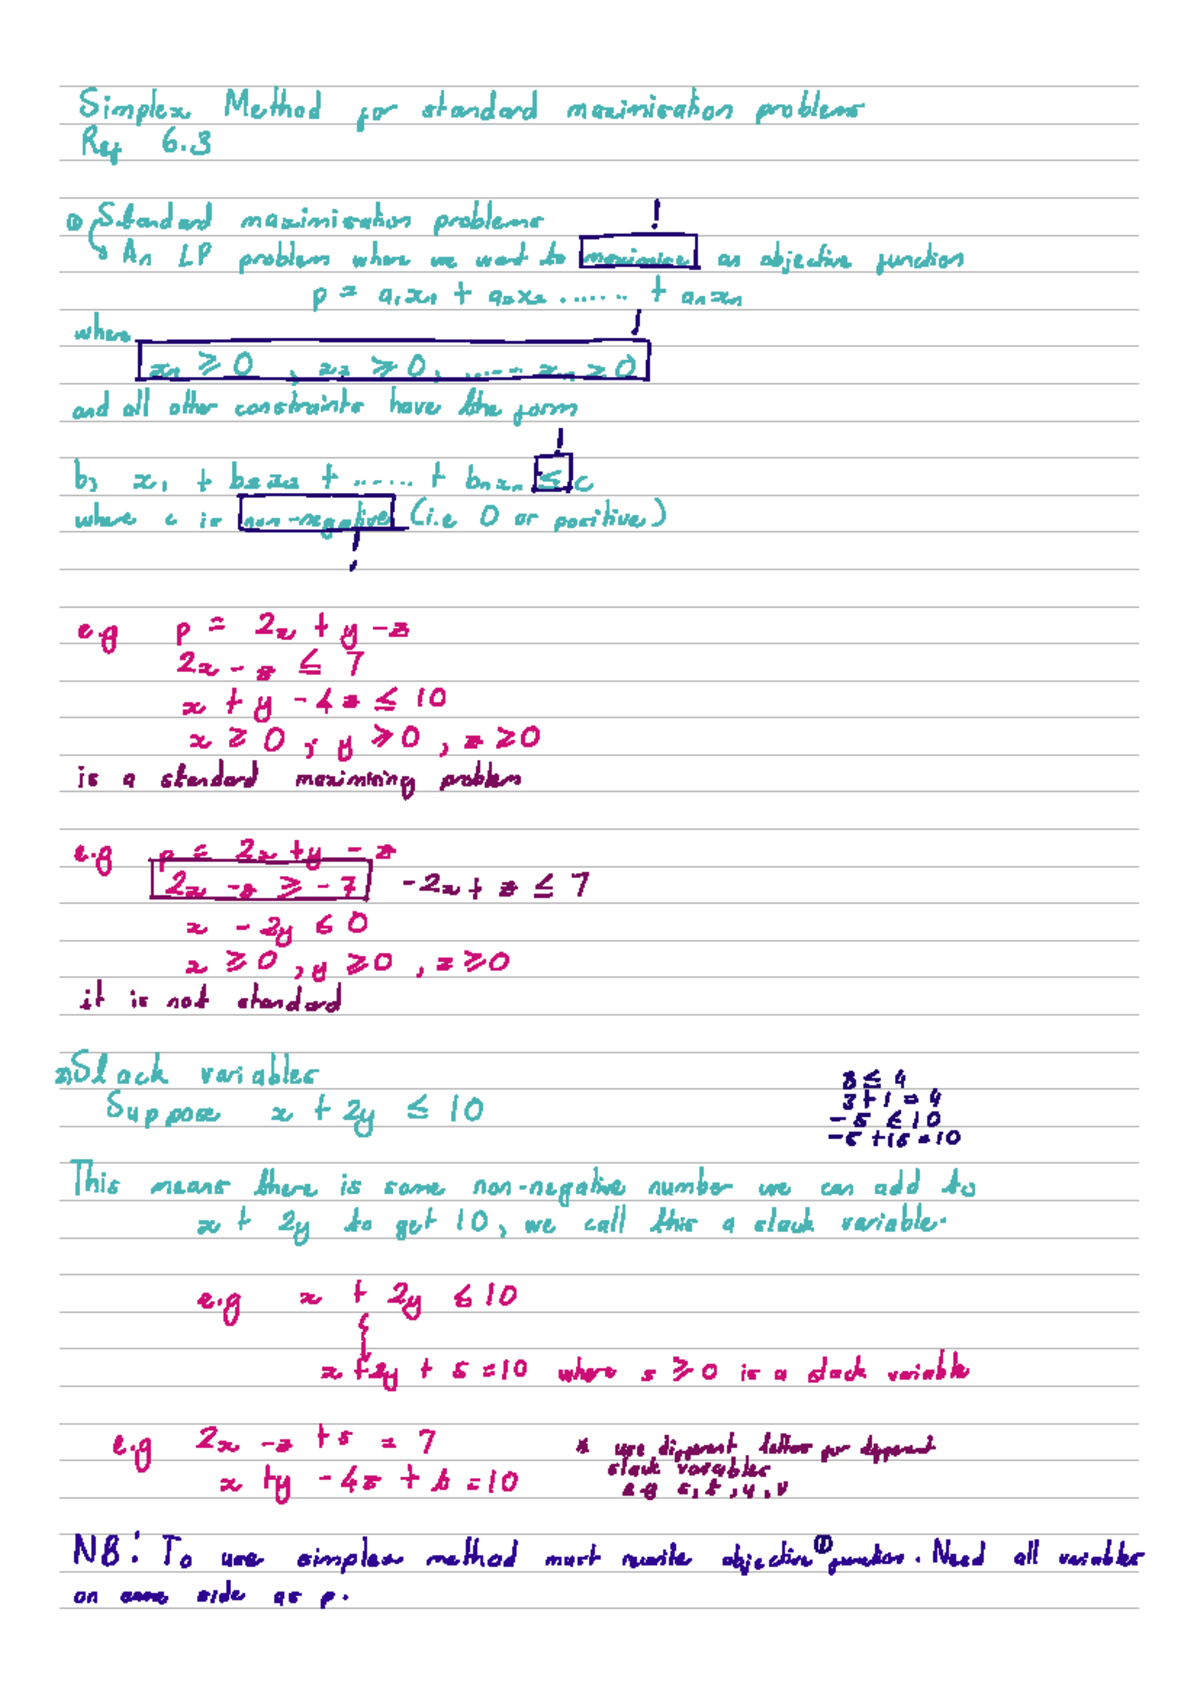 Simplex Method for standard maximisation problems
Ref 6.3
① Standard maximisation problems
!
↳ An LP problem where we want to maximise an objective function
p = a₁x₁ + a₂x₂ ...... + aₙxₙ
where
!
x₁ ≥ 0 , x₂ ≥ 0, ..... xₙ ≥ 0
and all other constraints have the form
!
b₁ x₁ + b₂x₂ + ...... + bₙxₙ ≤ c
where c is non-negative (i.e 0 or positive)
!
e.g p = 2x + y - z
2x - z ≤ 7
x + y - 4z ≤ 10
x ≥ 0 , y ≥ 0 , z ≥ 0
is a standard maximising problem
e.g p = 2x + y - z
2x - z ≥ - 7 -2x + z ≤ 7
x - 2y ≤ 0
x ≥ 0 , y ≥ 0 , z ≥ 0
it is not standard
2) Slack variables
Suppose x + 2y ≤ 10
3 ≤ 4
3 + 1 = 4
- 5 ≤ 10
- 5 + 15 = 10
This means there is some non-negative number we can add to
x + 2y to get 10, we call this a slack variable.
e.g x + 2y ≤ 10
x + 2y + s = 10 where s ≥ 0 is a slack variable
e.g 2x - z + s = 7
x + y - 4z + t = 10
* use different letters for different
slack variables
e.g s, t, u, v
NB: To use simplex method must rewrite objective ① function. Need all variables
on same side as p.